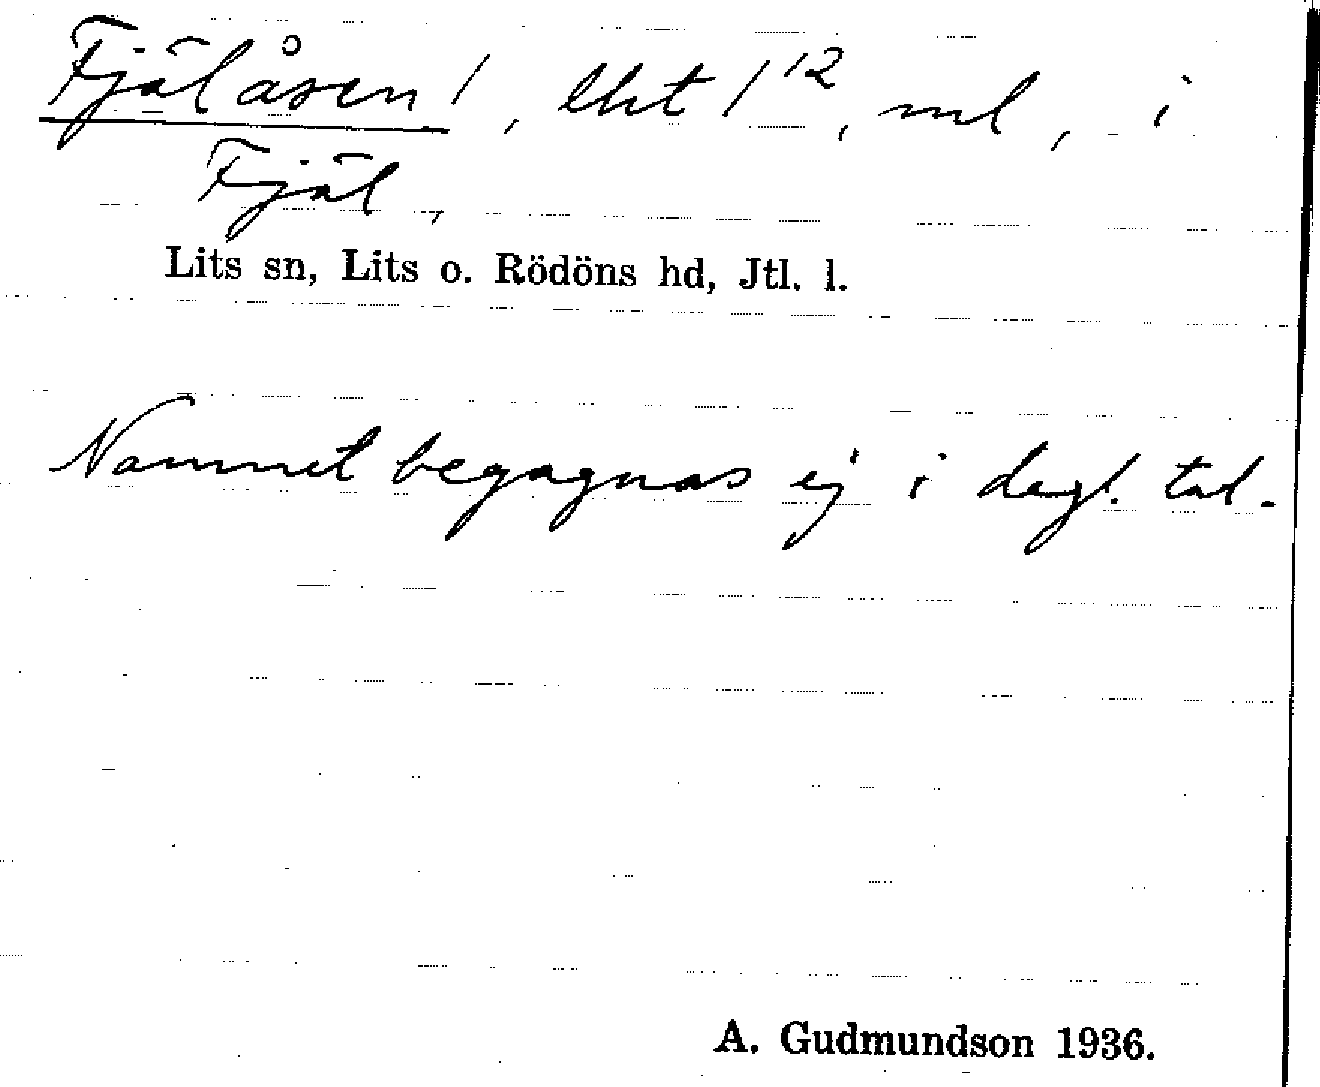 Fjälåsen /, lht 1¹², nvl, i
Fjäl,
Lits sn, Lits o. Rödöns hd, Jtl. l.
Namnet begagnas ej i dagl. tal.
A. Gudmundson 1936.